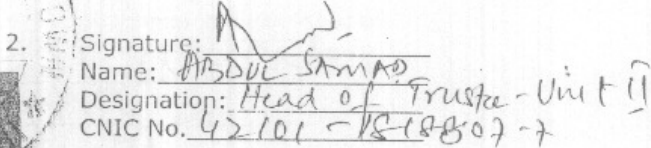 2. Signature:
Name: ABDUL SAMAD
Designation: Head of Trustee - Unit II
CNIC No. 42101 - 1818807-7